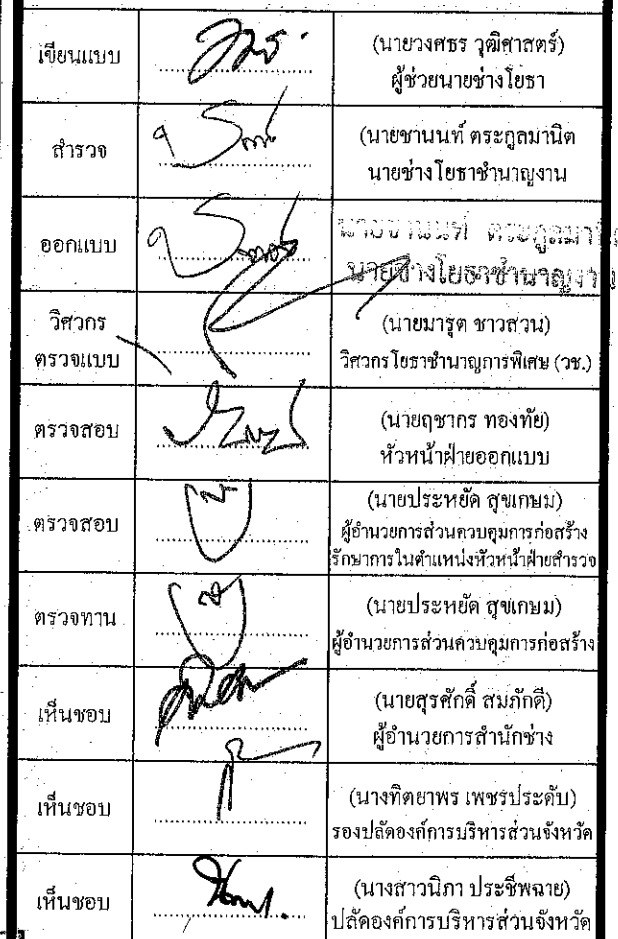 เขียนแบบ
(นายวงศธร วุฒิศาสตร์)
ผู้ช่วยนายช่างโยธา
สำรวจ
(นายชานนท์ ตระกูลมานิต
นายช่างโยธาชำนาญงาน
ออกแบบ
นายชานนท์ ตระกูลมานิ
นายช่างโยธาชำนาญงาน
วิศวกร
ตรวจแบบ
(นายมารุต ชาวสวน)
วิศวกรโยธาชำนาญการพิเศษ (วช.)
ตรวจสอบ
(นายฤชากร ทองทัย)
หัวหน้าฝ่ายออกแบบ
ตรวจสอบ
(นายประหยัด สุขเกษม)
ผู้อำนวยการส่วนควบคุมการก่อสร้าง
รักษาการในตำแหน่งหัวหน้าฝ่ายสำรวจ
ตรวจทาน
(นายประหยัด สุขเกษม)
ผู้อำนวยการส่วนควบคุมการก่อสร้าง
เห็นชอบ
(นายสุรศักดิ์ สมภักดี)
ผู้อำนวยการสำนักช่าง
เห็นชอบ
(นางทิตยาพร เพชรประดับ)
รองปลัดองค์การบริหารส่วนจังหวัด
เห็นชอบ
(นางสาวนิภา ประชีพฉาย)
ปลัดองค์การบริหารส่วนจังหวัด